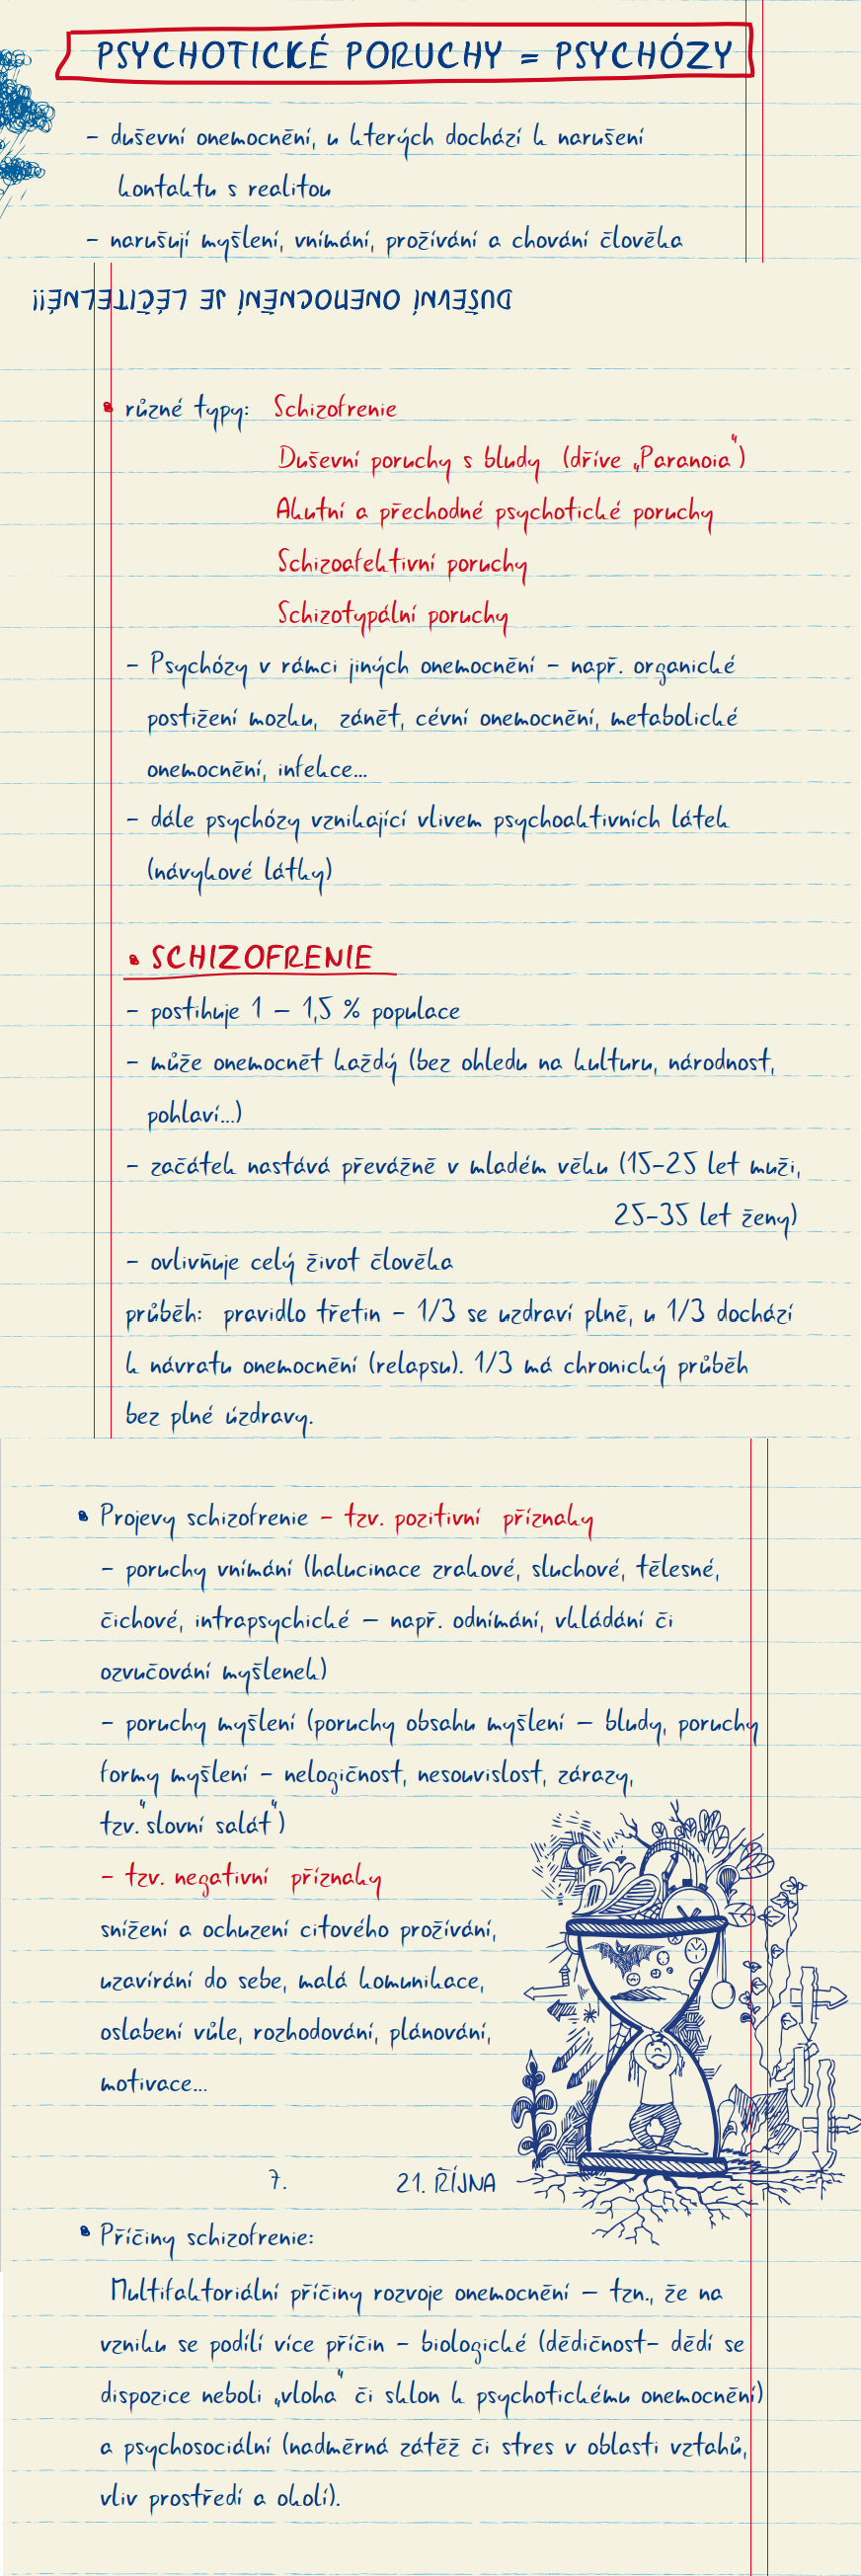 PSYCHOTICKÉ PORUCHY = PSYCHÓZY
- duševní onemocnění, u kterých dochází k narušení
kontaktu s realitou
- narušují myšlení, vnímání, prožívání a chování člověka
DUŠEVNÍ ONEMOCNĚNÍ JE LÉČITELNÉ!!
• různé typy: Schizofrenie
Duševní poruchy s bludy (dříve „Paranoia“)
Akutní a přechodné psychotické poruchy
Schizoafektivní poruchy
Schizotypální poruchy
- Psychózy v rámci jiných onemocnění - např. organické
postižení mozku, zánět, cévní onemocnění, metabolické
onemocnění, infekce...
- dále psychózy vznikající vlivem psychoaktivních látek
(návykové látky)
• SCHIZOFRENIE
- postihuje 1 – 1,5 % populace
- může onemocnět každý (bez ohledu na kulturu, národnost,
pohlaví...)
- začátek nastává převážně v mladém věku (15-25 let muži,
25-35 let ženy)
- ovlivňuje celý život člověka
průběh: pravidlo třetin - 1/3 se uzdraví plně, u 1/3 dochází
k návratu onemocnění (relapsu). 1/3 má chronický průběh
bez plné úzdravy.
• Projevy schizofrenie - tzv. pozitivní příznaky
- poruchy vnímání (halucinace zrakové, sluchové, tělesné,
čichové, intrapsychické – např. odnímání, vkládání či
ozvučování myšlenek)
- poruchy myšlení (poruchy obsahu myšlení – bludy, poruchy
formy myšlení - nelogičnost, nesouvislost, zárazy,
tzv.“slovní salát“)
- tzv. negativní příznaky
snížení a ochuzení citového prožívání,
uzavírání do sebe, malá komunikace,
oslabení vůle, rozhodování, plánování,
motivace...
7. 21. ŘÍJNA
• Příčiny schizofrenie:
Multifaktoriální příčiny rozvoje onemocnění – tzn., že na
vzniku se podílí více příčin - biologické (dědičnost- dědí se
dispozice neboli „vloha“ či sklon k psychotickému onemocnění)
a psychosociální (nadměrná zátěž či stres v oblasti vztahů,
vliv prostředí a okolí).